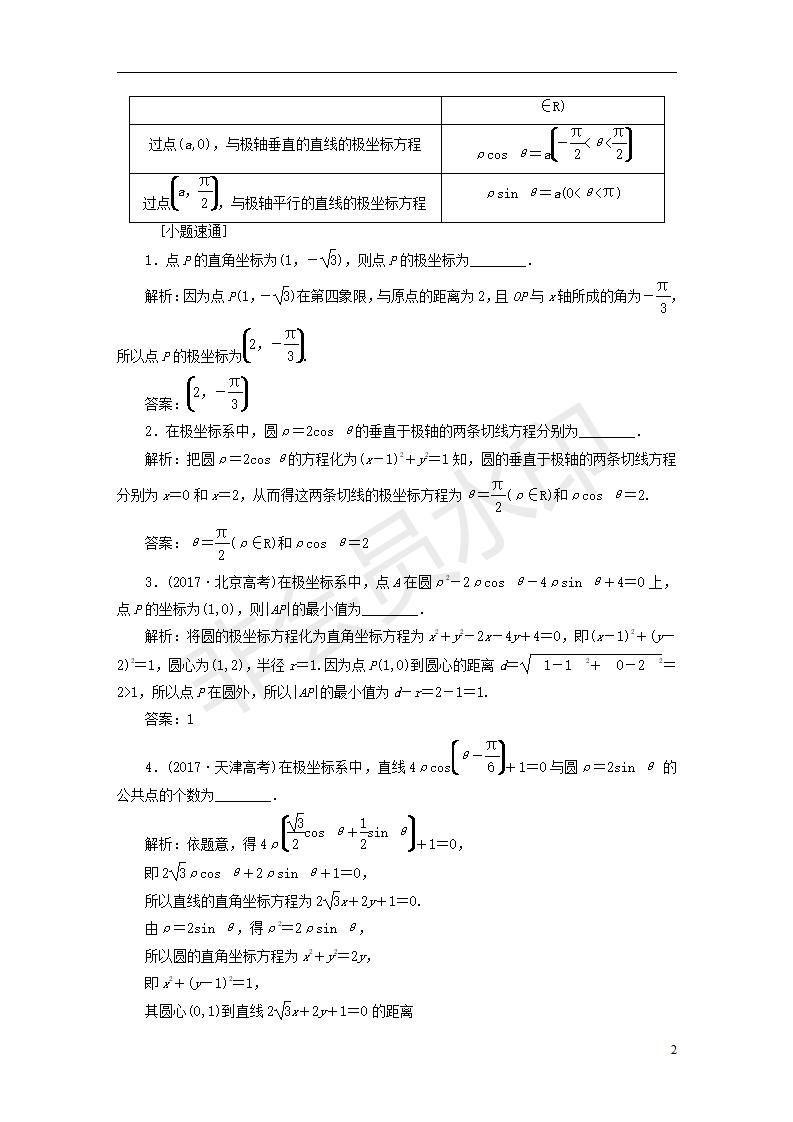 ∈R)
过点(a,0),与极轴垂直的直线的极坐标方程 ρcos θ=a(-π/2<θ<π/2)
过点(a,π/2),与极轴平行的直线的极坐标方程 ρsin θ=a(0<θ<π)
[小题速通]
1.点P的直角坐标为(1,-√3),则点P的极坐标为________.
解析:因为点P(1,-√3)在第四象限,与原点的距离为2,且OP与x轴所成的角为-π/3,
所以点P的极坐标为(2,-π/3).
答案:(2,-π/3)
2.在极坐标系中,圆ρ=2cos θ的垂直于极轴的两条切线方程分别为________.
解析:把圆ρ=2cos θ的方程化为(x-1)²+y²=1知,圆的垂直于极轴的两条切线方程
分别为x=0和x=2,从而得这两条切线的极坐标方程为θ=π/2(ρ∈R)和ρcos θ=2.
答案:θ=π/2(ρ∈R)和ρcos θ=2
3.(2017·北京高考)在极坐标系中,点A在圆ρ²-2ρcos θ-4ρsin θ+4=0上,
点P的坐标为(1,0),则|AP|的最小值为________.
解析:将圆的极坐标方程化为直角坐标方程为x²+y²-2x-4y+4=0,即(x-1)²+(y-
2)²=1,圆心为(1,2),半径r=1.因为点P(1,0)到圆心的距离d=√ 1-1 ²+ 0-2 ²=
2>1,所以点P在圆外,所以|AP|的最小值为d-r=2-1=1.
答案:1
4.(2017·天津高考)在极坐标系中,直线4ρcos(θ-π/6)+1=0与圆ρ=2sin θ 的
公共点的个数为________.
解析:依题意,得4ρ(√3/2cos θ+1/2sin θ)+1=0,
即2√3ρcos θ+2ρsin θ+1=0,
所以直线的直角坐标方程为2√3x+2y+1=0.
由ρ=2sin θ,得ρ²=2ρsin θ,
所以圆的直角坐标方程为x²+y²=2y,
即x²+(y-1)²=1,
其圆心(0,1)到直线2√3x+2y+1=0的距离
2
非会员水印